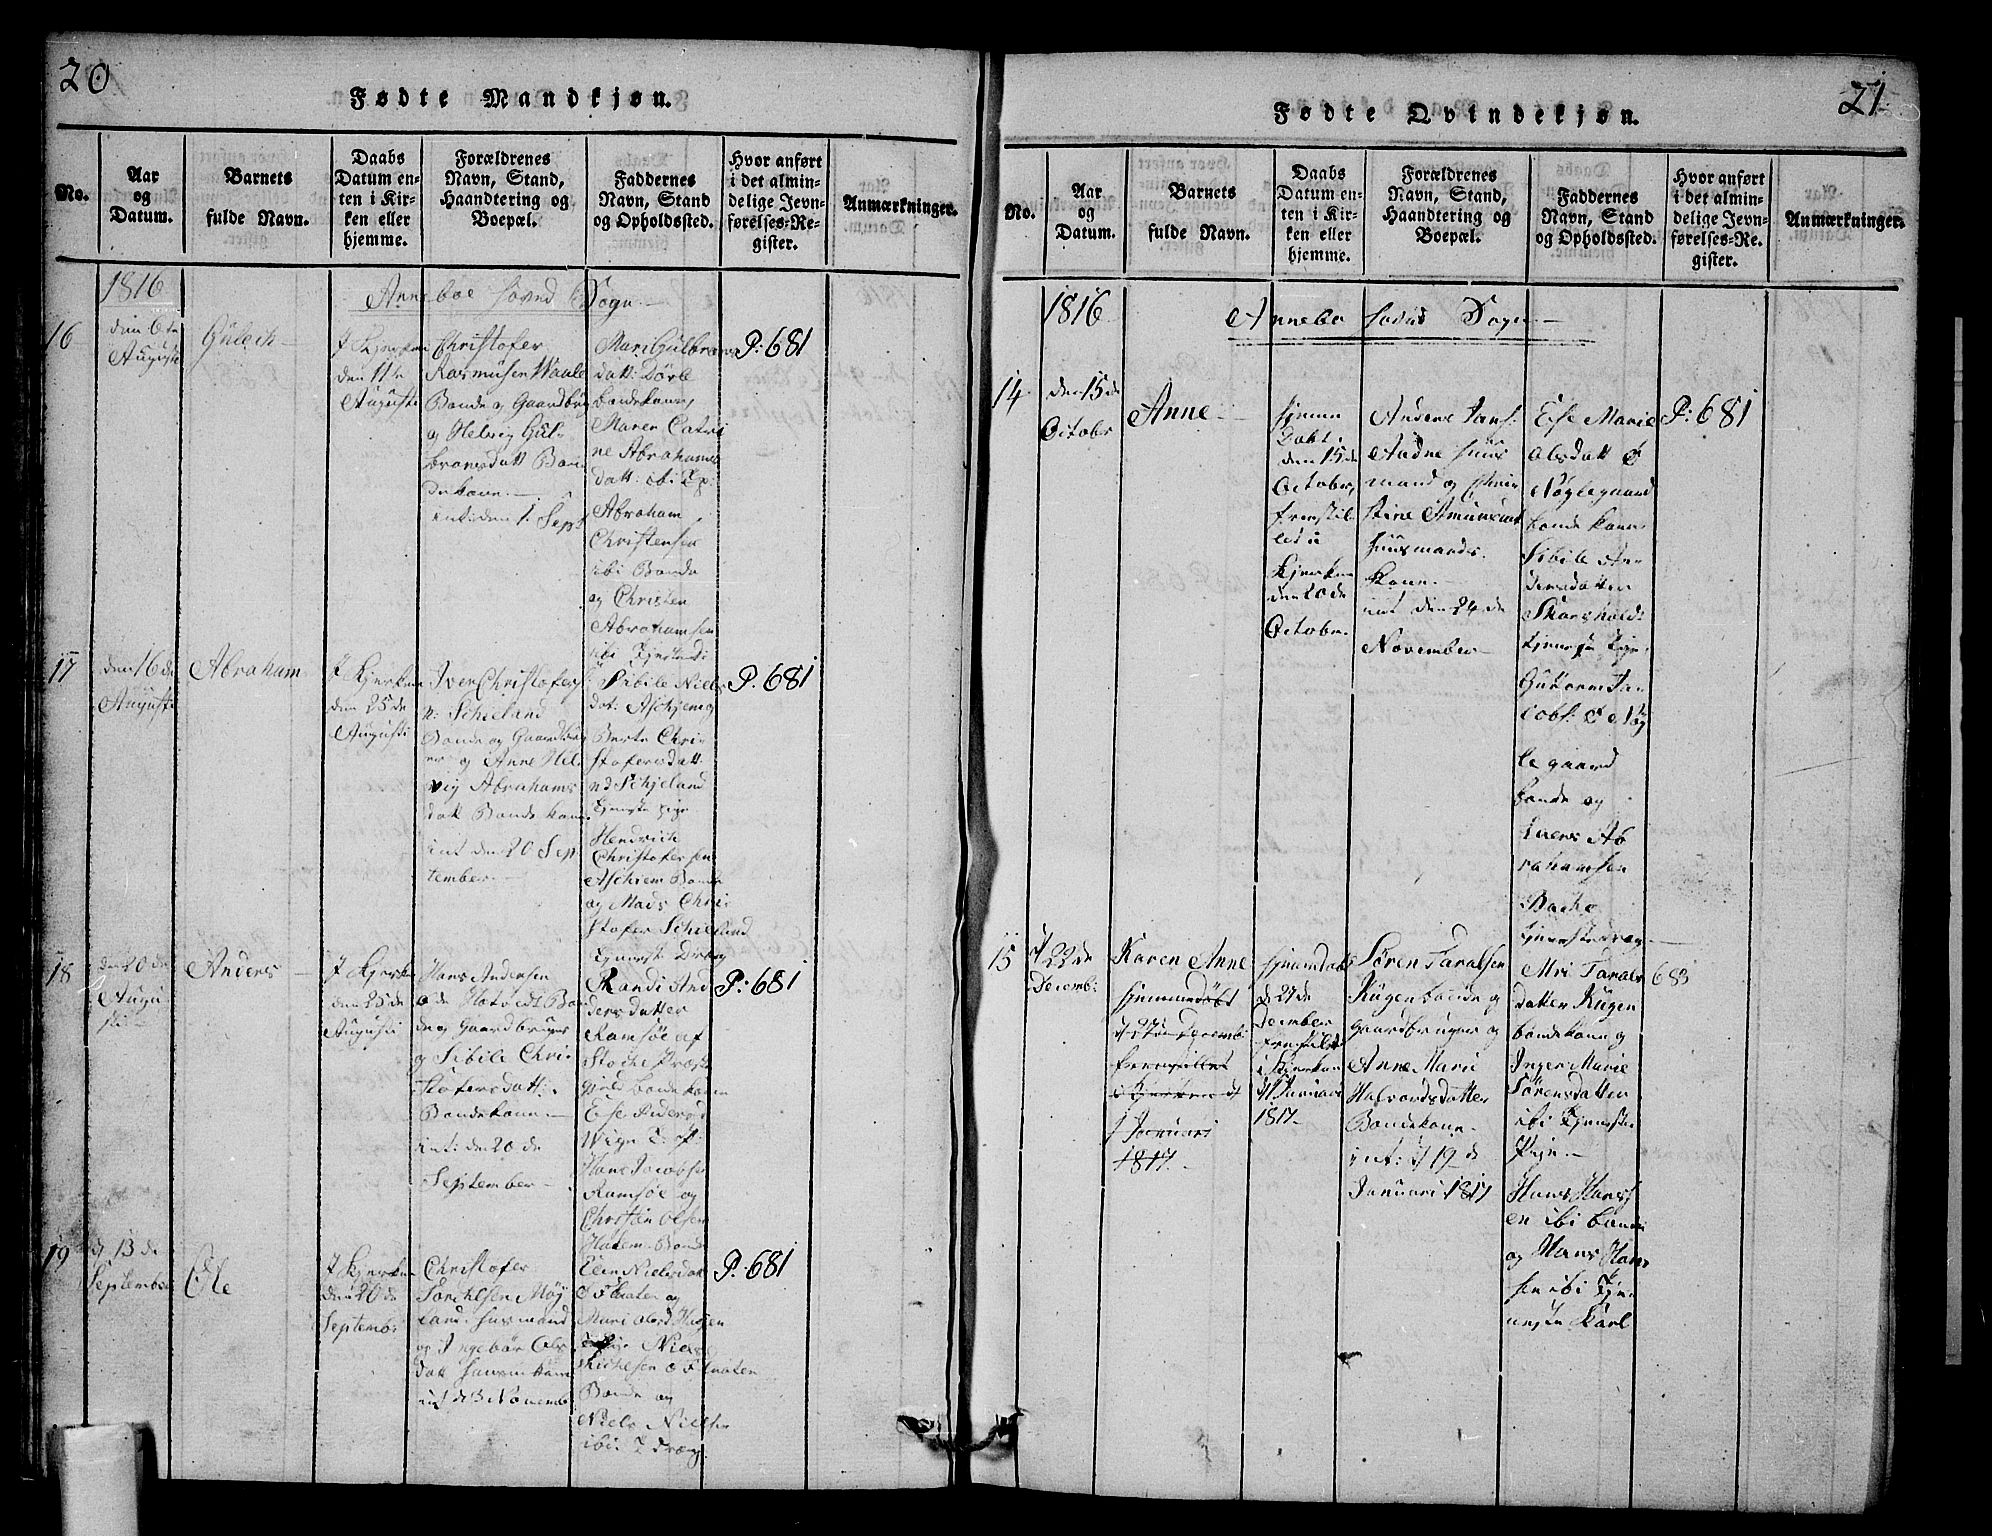 20
Fødte Mandkjøn.
No.
Aar
og
Datum.
Barnets
fulde Navn.
Daabs
Datum en-
ten i Kir-
ken eller
hjemme.
Forældrenes
Navn, Stand,
Haandtering og
Boepæl.
Faddernes
Navn, Stand
og Opholdssted.
Hvor anført
i det almin-
delige Jevn-
førelses-Re-
gister.
Anmærkninger.
1816
Anneboe Sogn
16
den 6te
Augusti
Guleik
I Kjerken
den 11te
Augusti
Christofer
Rasmusen Waale
Bonde og Gaardbru
og Helvig Gul-
bransdatt Bon
dekone.
int: den 1. Sept
Mari Gulbrans
datt: Dørle
bondekone,
Maren Catri
ne Abrahams
datt: ibi
Abraham
Christensen
ibi Bonde
og Christen
Abrahamsen
ibi
P: 681
17
den 16 de
Augusti
Abraham
I Kjerken
den 25 de
Augusti
Iver Christofers
n: Schieland
Bonde og Gaardbru
er og Anne Hel
vig Abrahams
datt Bondekone
int den 20 Sep
tember.
Sibile Niels
dat: Aschjem og
Berte Chri-
stofersdatt:
nd Schjeland
tjeneste pige
Hendrich
Christofersen
Aschiem Bonde
og Mads Chri-
stofer Schieland
Tjeneste Dreng
P. 681
18
den 20 de
Augu
sti
Anders
I Kjerken
den 25 de
Augusti
Hans Andersen
Bon
de og Gaardbruger
og Sibile Chri-
stofersdatt:
Bondekone
int: de 20 de
September
Randi And
dersdatter
Ramsøe af
Stocke Præste
gield bondekone
Else
Hans Jacobsen
Ramsøe og
Christen Olsen
Bonde
P: 681
19
d. 13 de
September
Ole
I Kjerken
den 20 de
Septembr
Christofer
Torchelsen Møy
land husmand
og Ingebør Ols
datt huusmkone
int d 3 Novemb
Elen Nielsdatt
og
Mari olsd
Niels
Bonde og
Niels Niels
ibi dreng
P: 681
21
Fødte Qvindekjøn.
No.
Aar
og
Datum.
Barnets
fulde Navn.
Daabs
Datum en-
ten i Kir-
ken eller
hjemme.
Forældrenes
Navn, Stand,
Haandtering og
Boepæl.
Faddernes
Navn, Stand
og Opholdssted.
Hvor anført
i det almin-
delige Jevn-
førelses-Re-
gister.
Anmærkninger.
1816
Annebo Sogn
14
den 15 de
Octobr
Anne
hjemme
Døbt
den 15 de
October,
fremstil
led i
Kjerken
den 20 de
Octobr.
Anders Jans:
Andne huus
mand og Chri
stine Amunsdat
huusmands
kone
int den 24 de
November
Else Marie
olsdatt
Nøglegaard
bondekone
Sibile An
dersdatter
tjeneste Pige
Gutorm Ja
cobs: Nøg
legaard
bonde og
Iver Ab
rahamsen
Bache
tjenestedreng
P: 681
15
d 22 de
Decemb:
Karen Anne
hjemmedøbt
d 27 de Decemb:
fremstillet
i Kjerken d
1 Januari
1817
hjemdøbt
d 27 de
December
fremstilet
i Kjerken
d 1 Januari
1817
Søren Taralsen
Rugen bonde og
Gaardbruger og
Anne Marie
Halvordsdatter
Bondekone
int: d 19 de
Januari 1817
Mri Tarals
datter Rugen
bondekone og
Inger Marie
Sørensdatter
ibi Tjeneste
Pige
Hans Hans
en ibi bonde
og Hans Han
sen ibi Tje
neste Karl
683